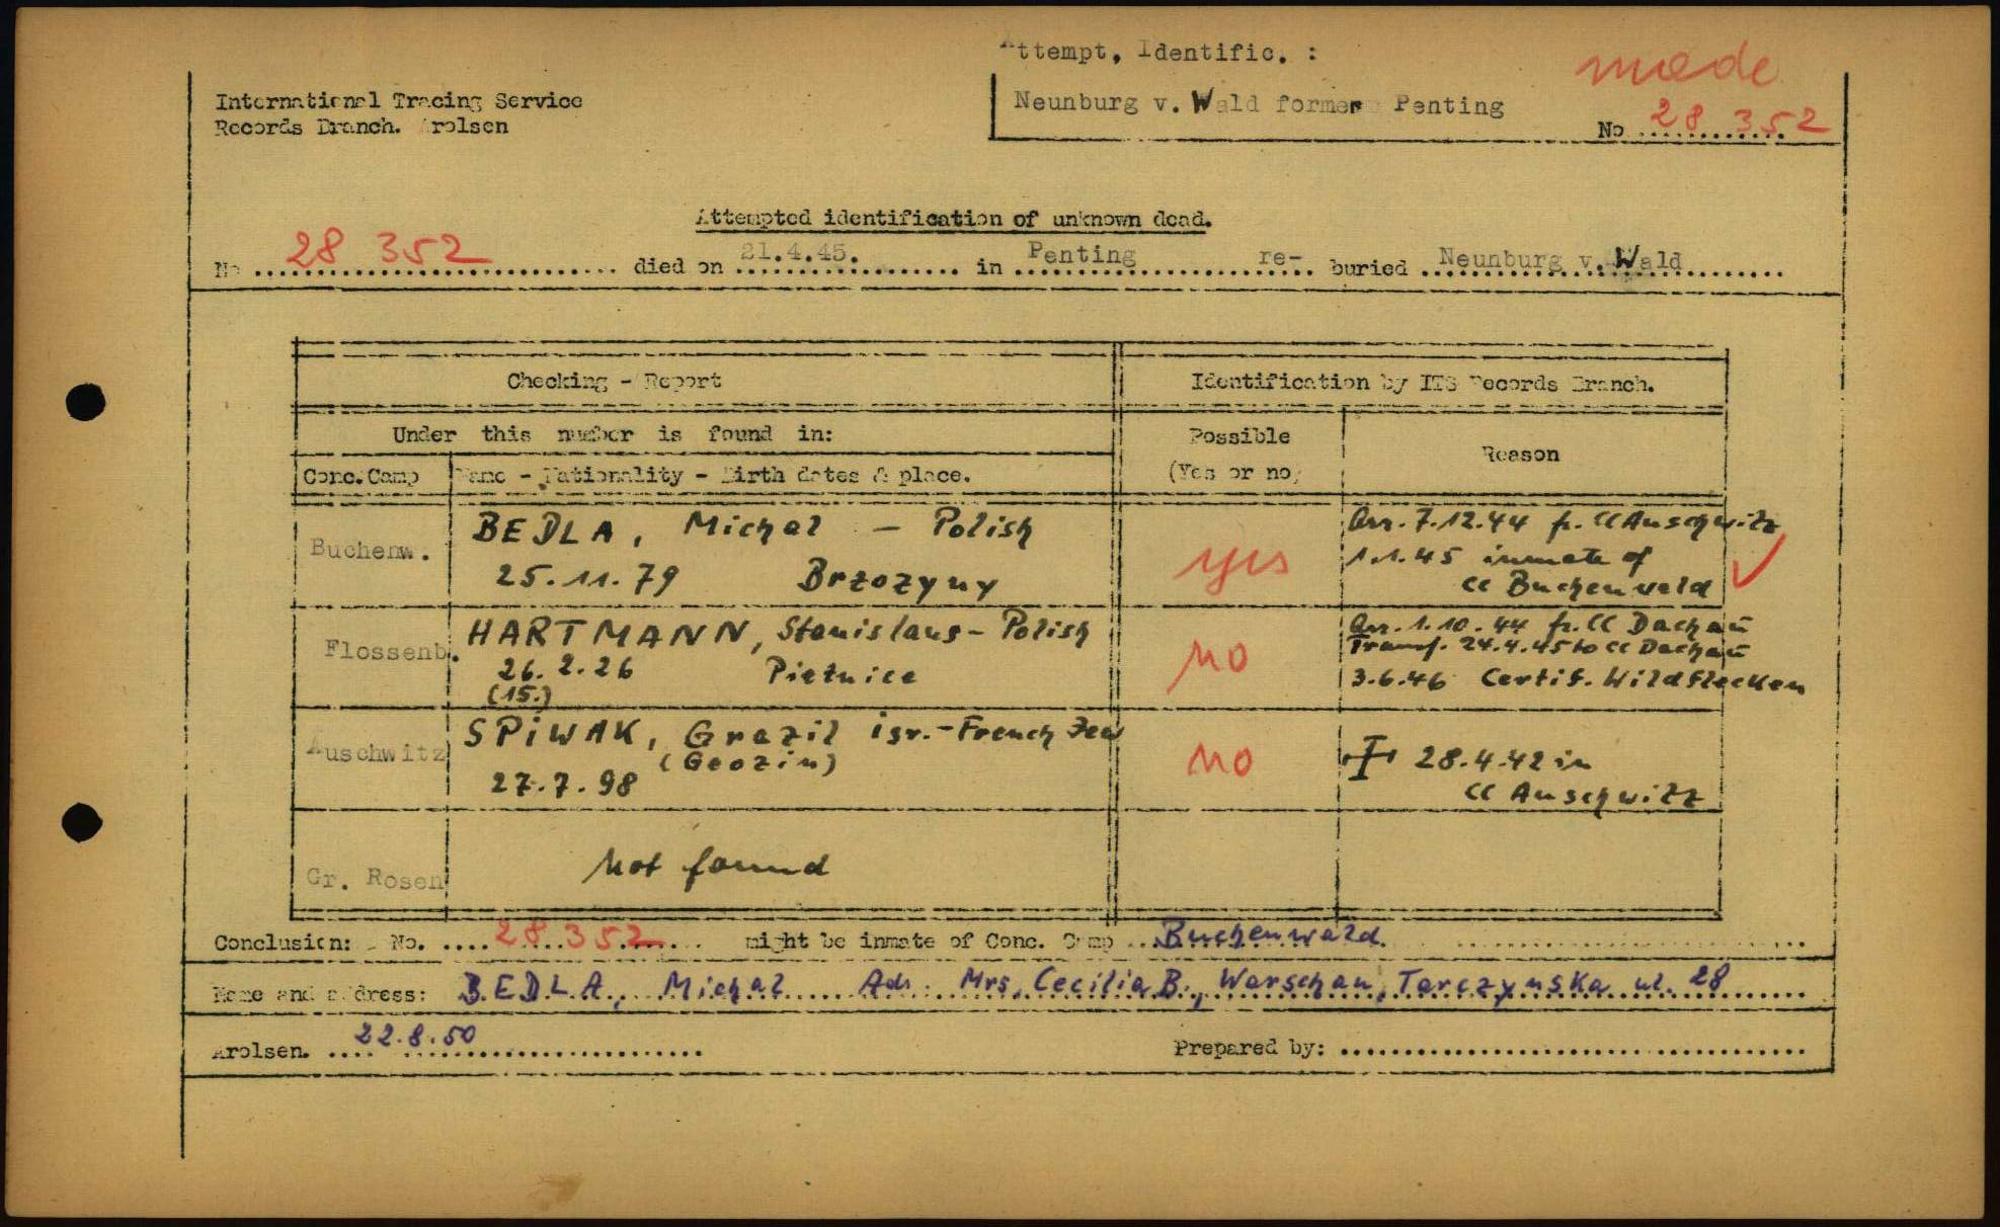 Attempt. Identific. :
made
International Tracing Service
Records Branch. Arolsen
Neunburg v. Wald former Penting
No 28 352
Attempted identification of unknown dead.
No 28 352 died on 21.4.45. in Penting re- buried Neunburg v. Wald
Checking - Report
Identification by ITS Records Branch.
Under this number is found in:
Possible
(Yes or no)
Reason
Conc. Camp
Name - Nationality - Birth dates & place.
Buchenw.
BEDLA, Michal - Polish
25.11.79 Brzozyny
yes
Arr. 7.12.44 fr. CC Auschwitz
1.1.45 inmate of
CC Buchenwald
Flossenb.
HARTMANN, Stanislaus - Polish
26.2.26 Pietnice
(15.)
no
Arr. 1.10.44 fr. CC Dachau
Transf. 24.4.45 to CC Dachau
3.6.46 Certif. Wildflecken
Auschwitz
SPIWAK, Grazil isr. - French Jew
(Geozin)
27.7.98
no
28.4.42 in
CC Auschwitz
Gr. Rosen
Not found
Conclusion: No. 28 352 might be inmate of Conc. Camp Buchenwald
Name and address: BEDLA, Michal Adr. Mrs. Cecilia B., Warschau, Tarczynska ul. 28
Arolsen. 22.8.50
Prepared by: